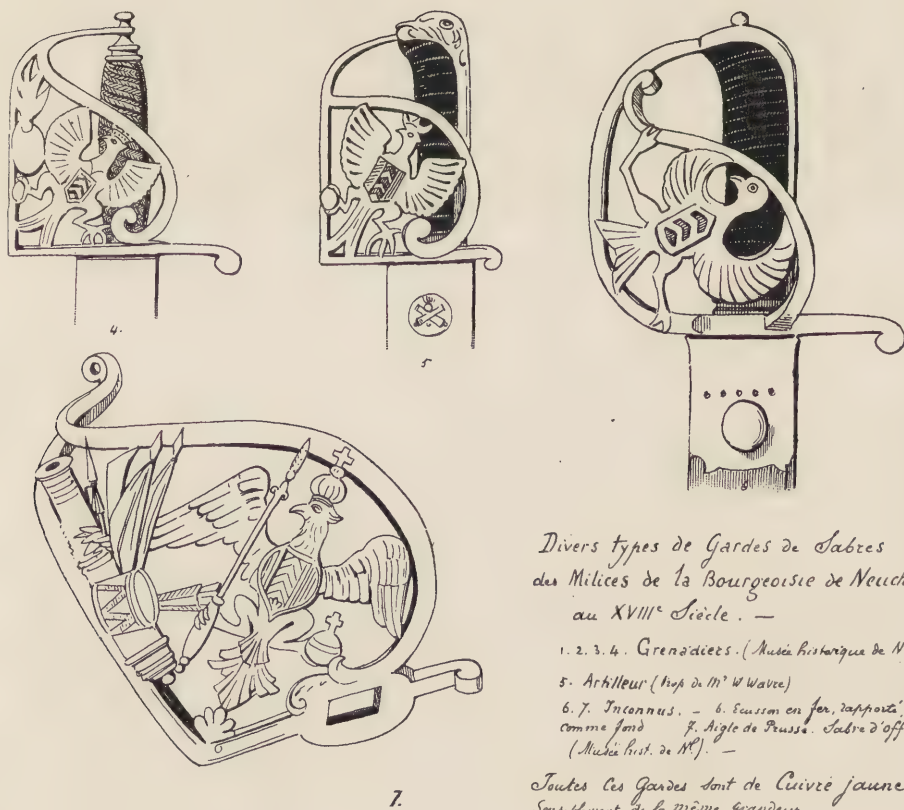 4.
5
7.
Divers types de Gardes de Sabres
des Milices de la Bourgeoisie de Neuch
au XVIIIe Siècle. —
1. 2. 3. 4. Grenadiers. (Musée historique de N
5. Artilleur (prop de Mr W Wavre)
6. 7. Inconnus. – 6. Ecusson en fer, rapporté,
comme fond 7. Aigle de Prusse. Sabre d'off
(Musée hist. de Nl). —
Toutes ces Gardes sont de Cuivre jaune
de la même grandeur